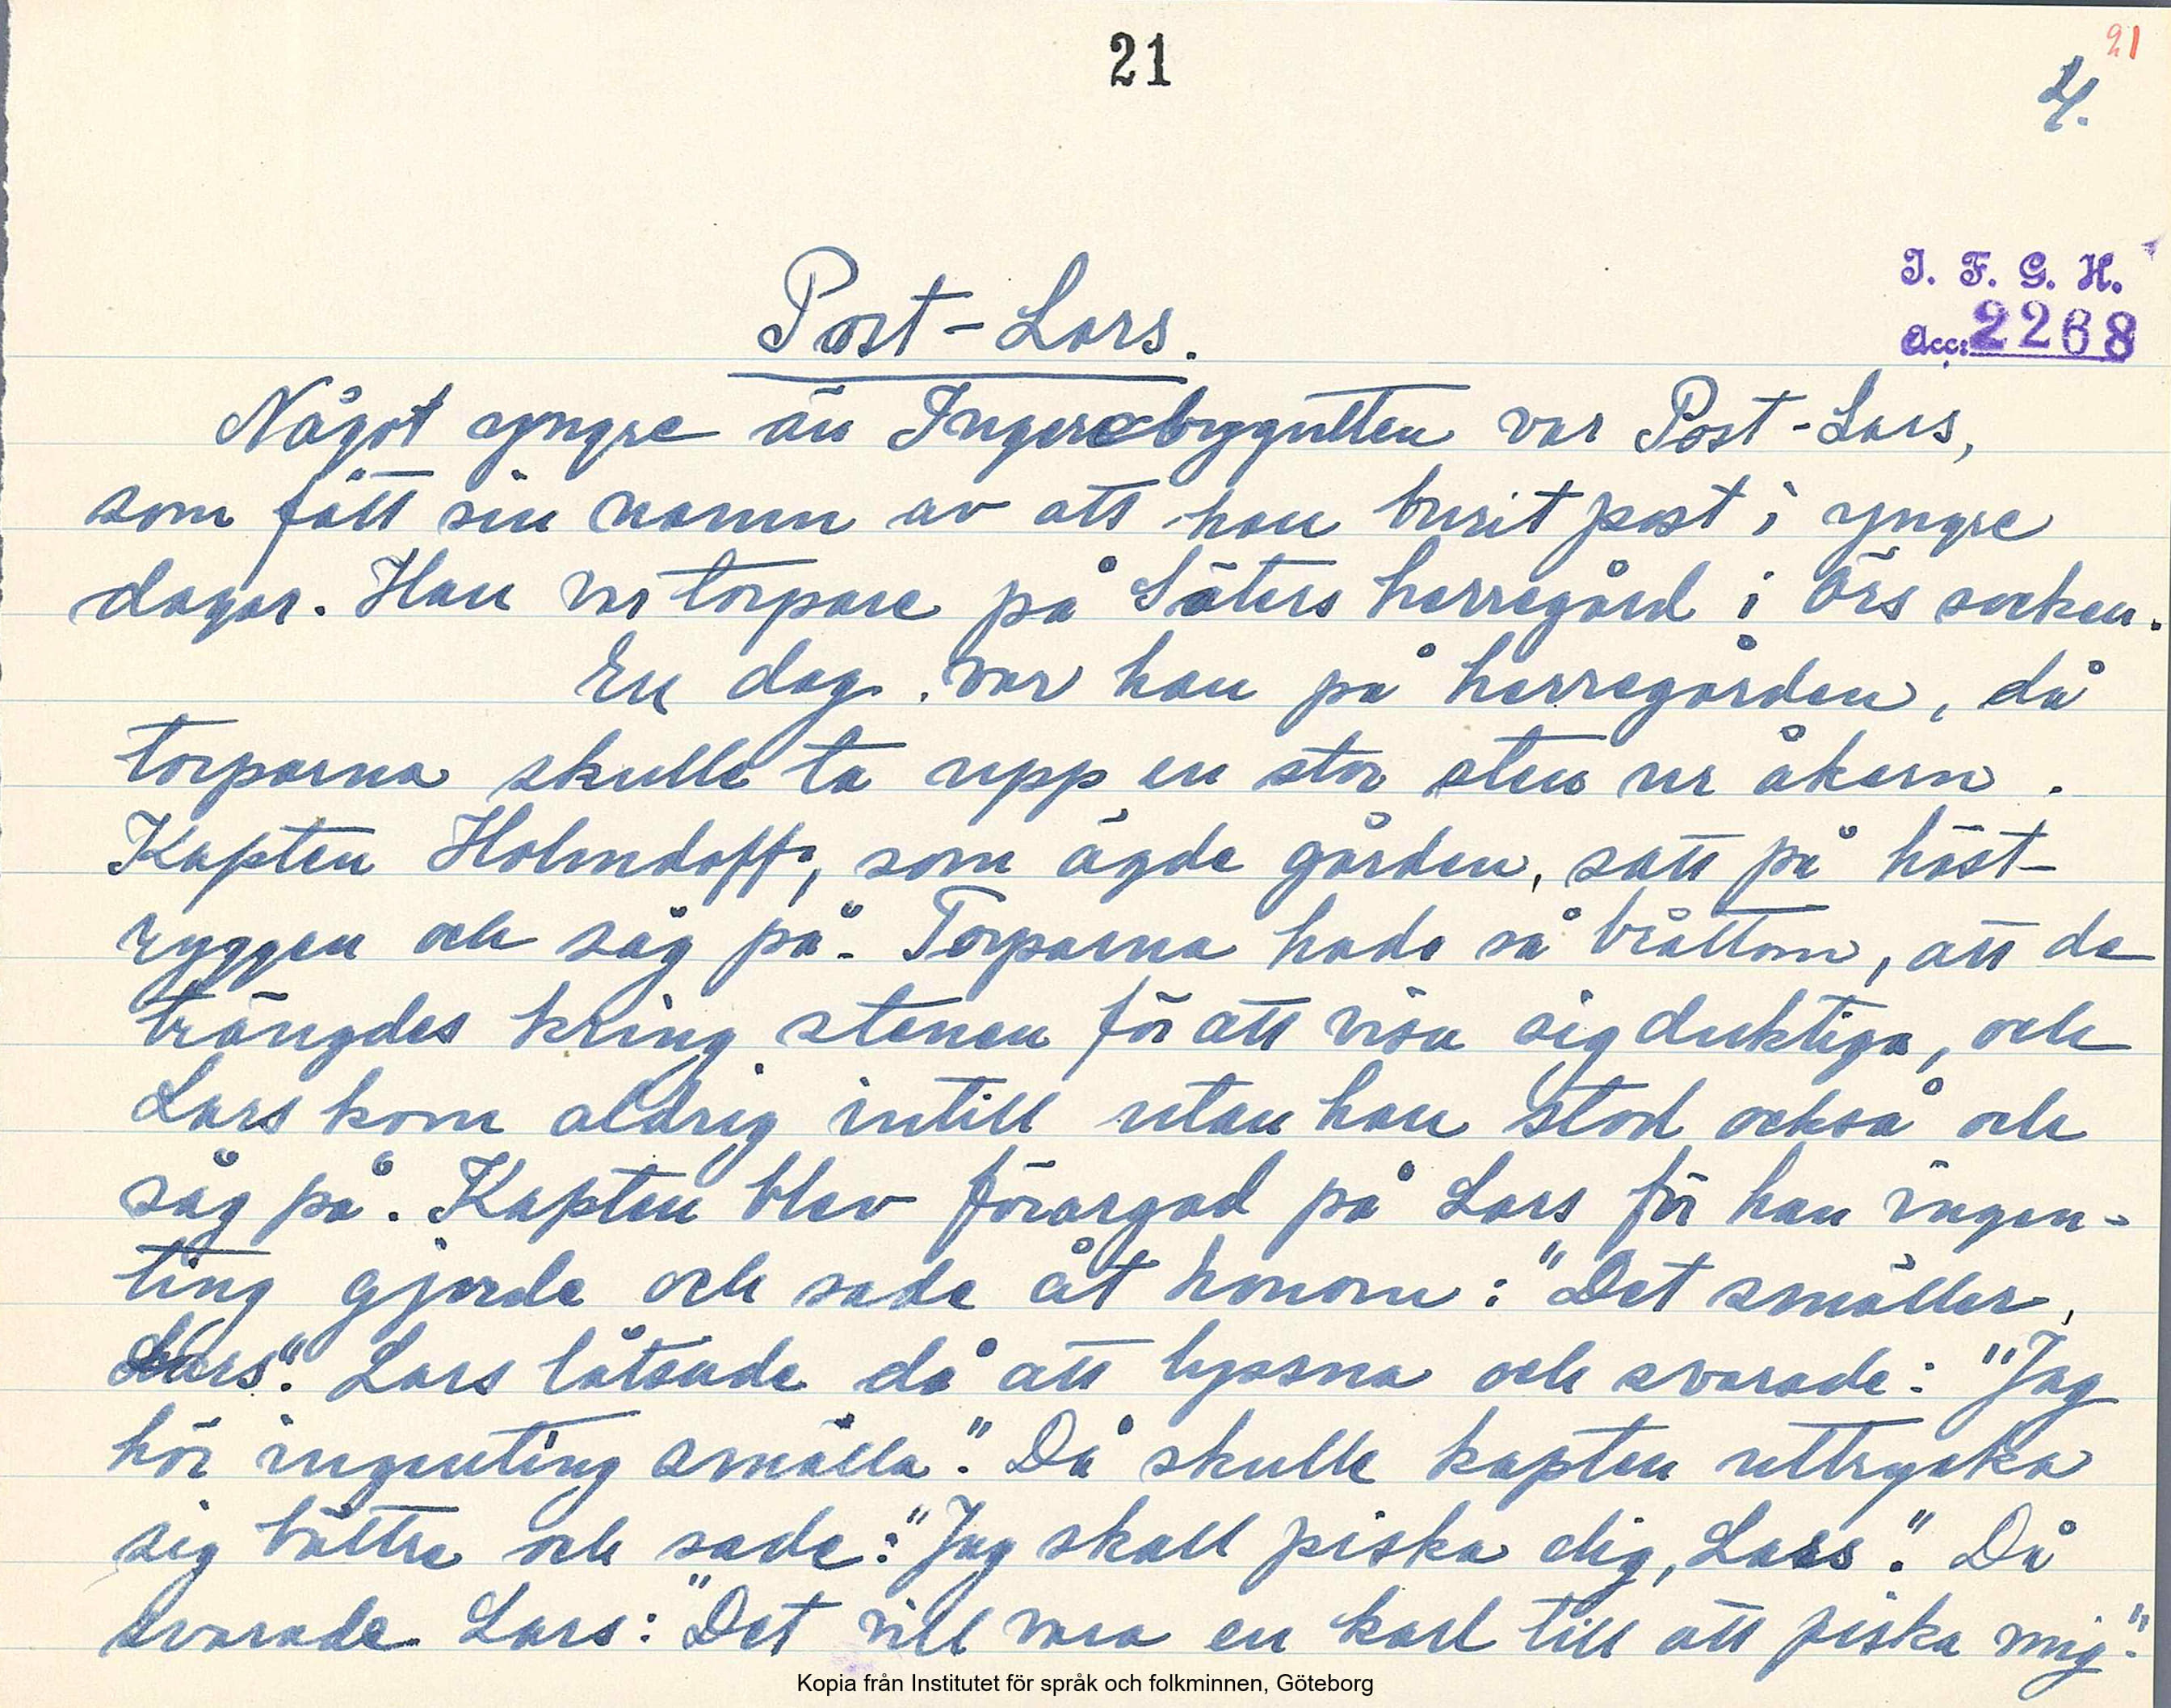 21
21
4.
I. F. G. H.
Acc: 2268
Post-Lars.
Något yngre än Ingerebygutten var Post-Lars,
som fått sin namn av att han burit post i yngre
dagar. Han var torpare på Säters herregård i Örs socken.
En dag var han på herregården, då
torparna skulle ta upp en stor sten ur åkern.
Kapten Holmdoff, som ägde gården, satt på häst-
ryggen och såg på. Torparna hade så bråttom, att de
trängdes kring stenen för att visa sig duktiga, och
Lars kom aldrig intill utan han stod också och
såg på. Kapten blev förargad på Lars för han ingen-
ting gjorde och sade åt honom: "Det smäller,
Lars". Lars låtsade då att lyssna och svarade: "Jag
hör ingenting smälla". Då skulle kapten uttrycka
sig bättre och sade: "Jag skall piska dig, Lars". Då
svarade Lars: "Det vill vara en karl till att piska mig".
Kopia från Institutet för språk och folkminnen, Göteborg